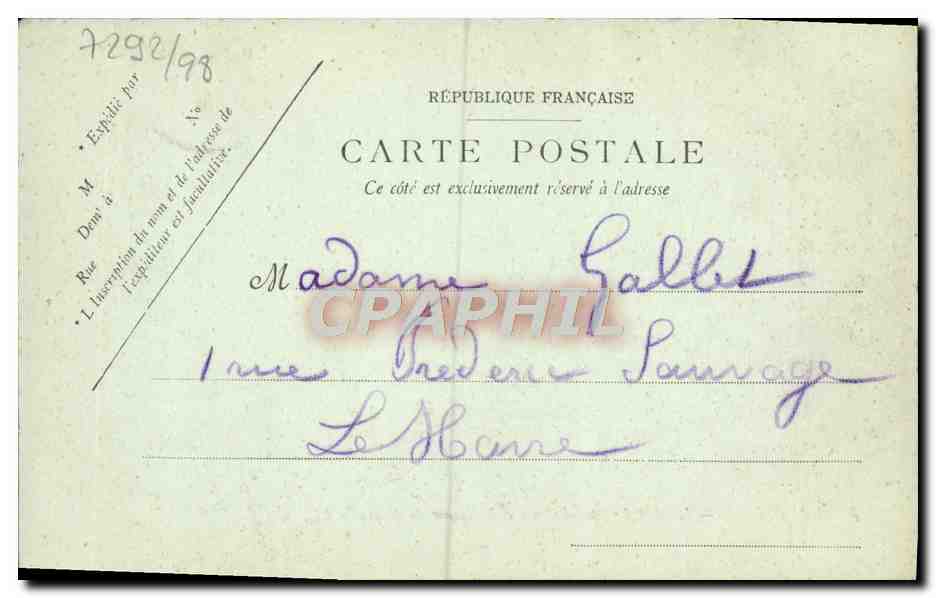 7292/98
* Expédié par
M N°
Demt à
Rue
* L'Inscription du nom et de l'adresse de
l'expéditeur est facultative.
RÉPUBLIQUE FRANÇAISE
CARTE POSTALE
Ce côté est exclusivement réservé à l'adresse
Madame Gallet
CPAPHIL
1 rue Frederic Sauvage
Le Havre